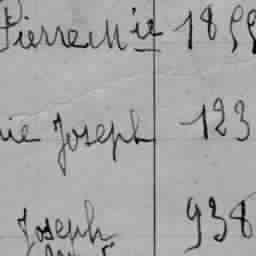 Pierre Mie 1899
rie Joseph 123
Joseph 938